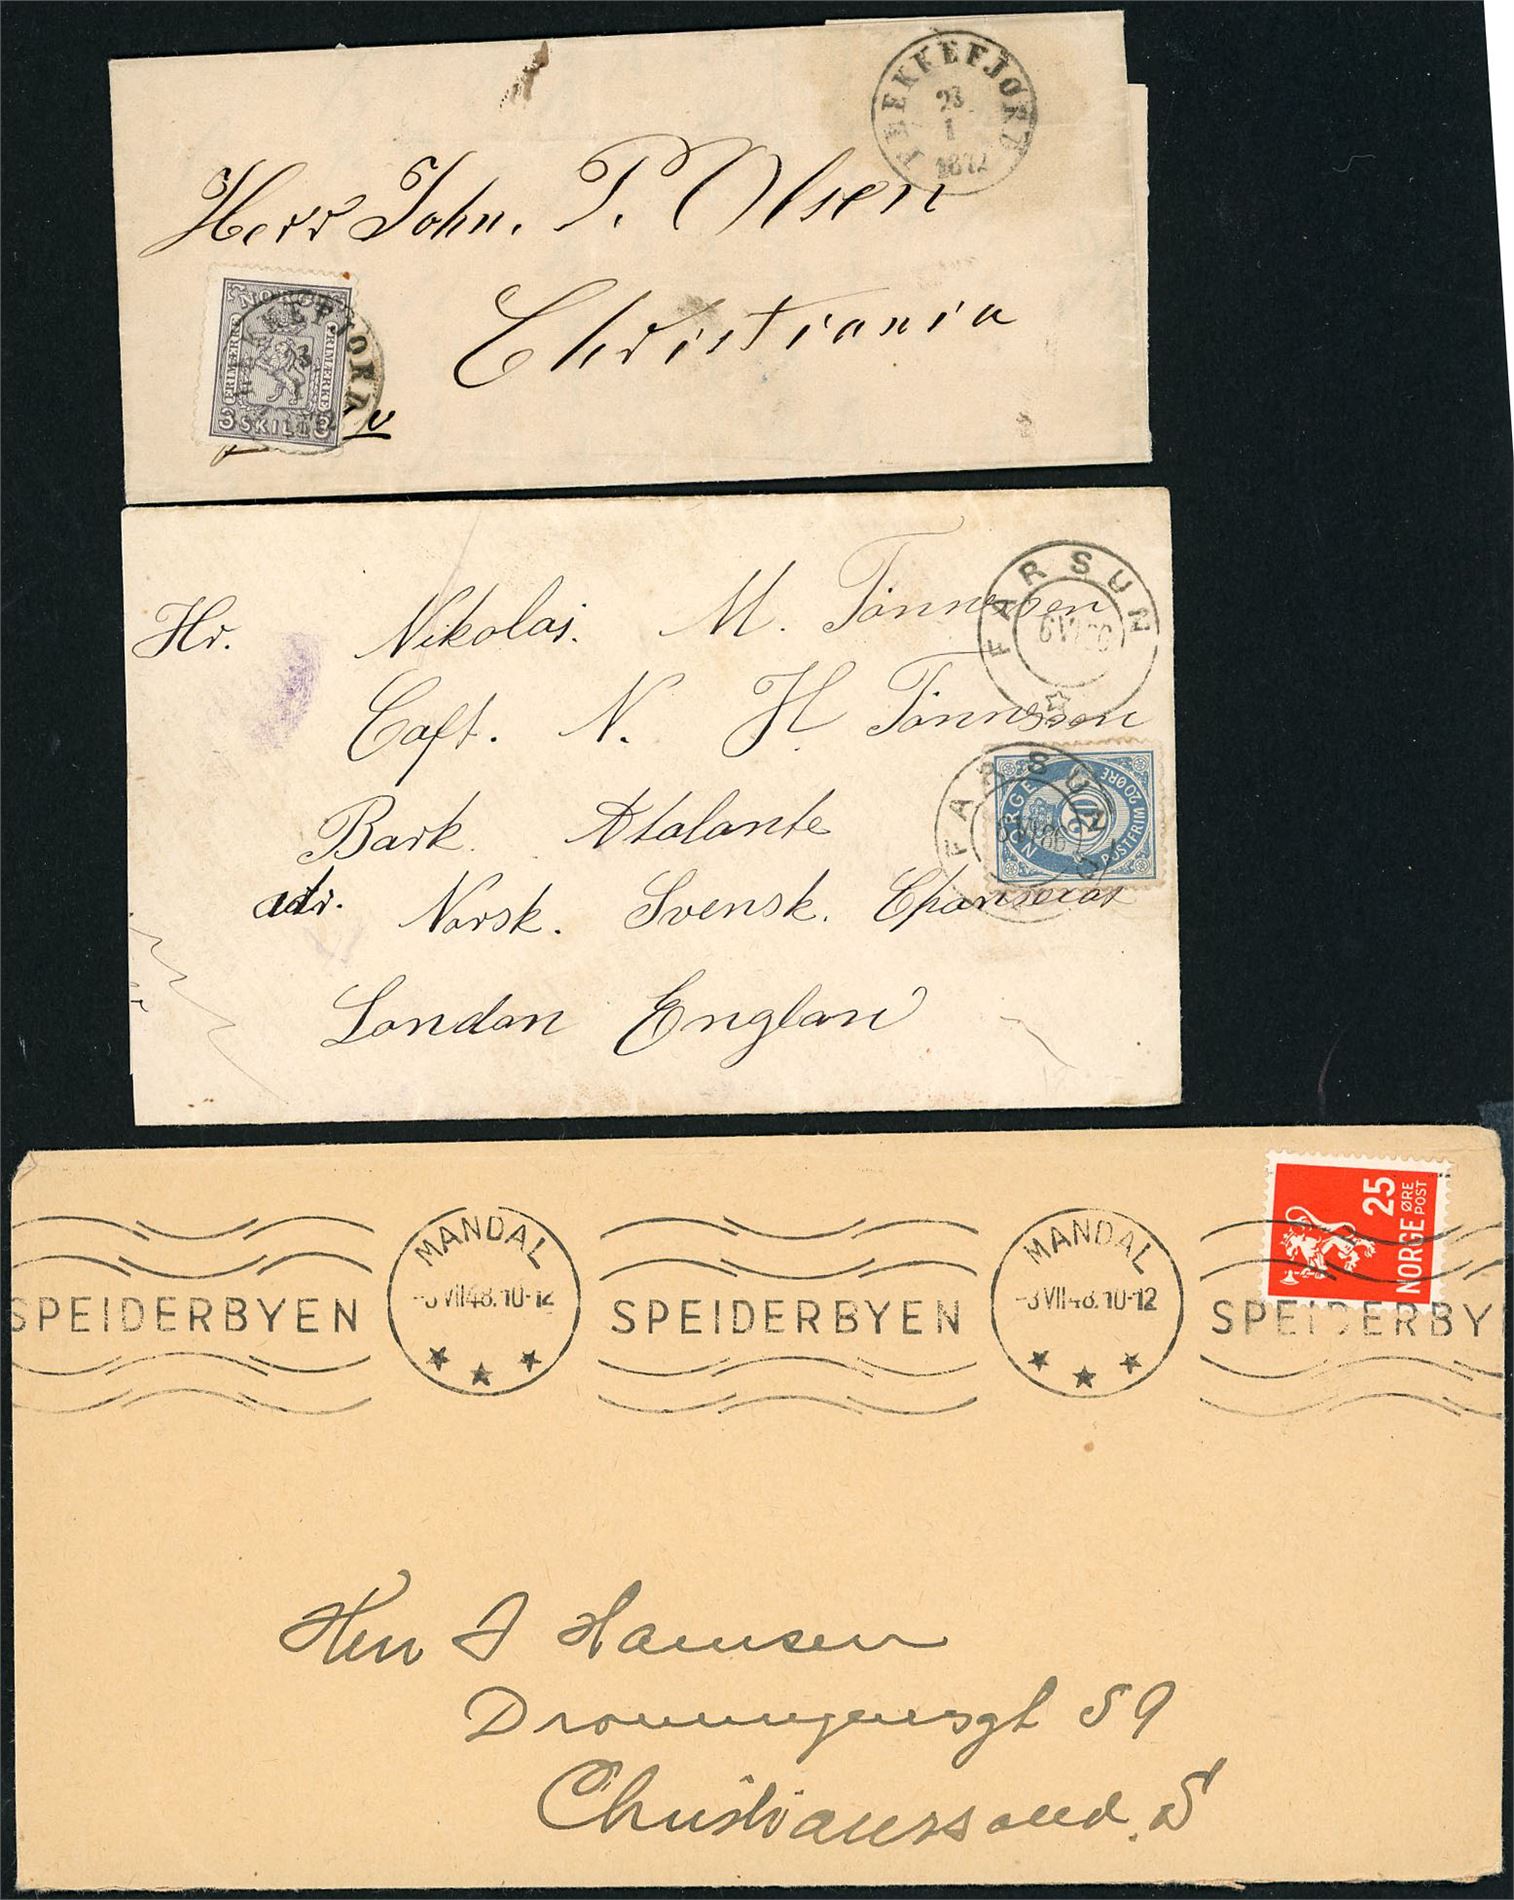 FLEKKEFJORD
23
1
1872
Herr John. P. Olsen
Christiania
NORGE
FRIMÆRKE FRIMÆRKE
3 SKILL 3
FLEKKEFJORD
FARSUN
6 VI 86
Hr. Nikolai. M. Tönnesen
Capt. N. H Tönnessen
Bark Atalante
adr. Norsk. Svensk.
London England
NORGE
POSTFRIM 20 ØRE
FARSUND
6 VI 86
25
ØRE
POST
NORGE
MANDAL MANDAL
SPEIDERBYEN -3 VII 48. 10-12 SPEIDERBYEN -3 VII 48. 10-12 SPEIDERBY
Herr J Hansen
Dronningensgt 59
Christianssand. S